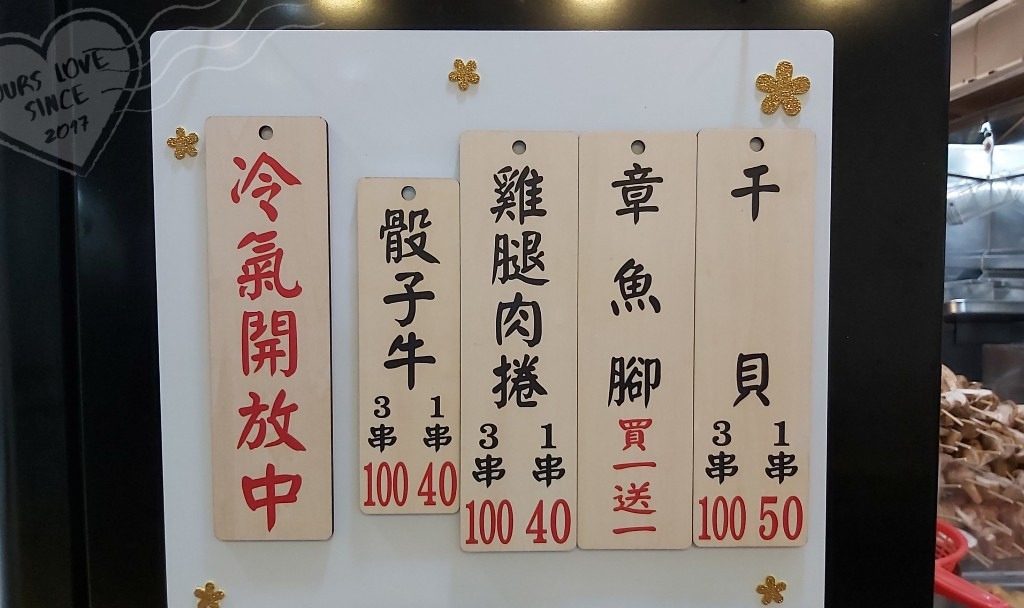 OURS LOVE
SINCE
2017
冷氣開放中
骰子牛
3串 1串
100 40
雞腿肉捲
3串 1串
100 40
章魚腳
買一送一
干貝
3串 1串
100 50